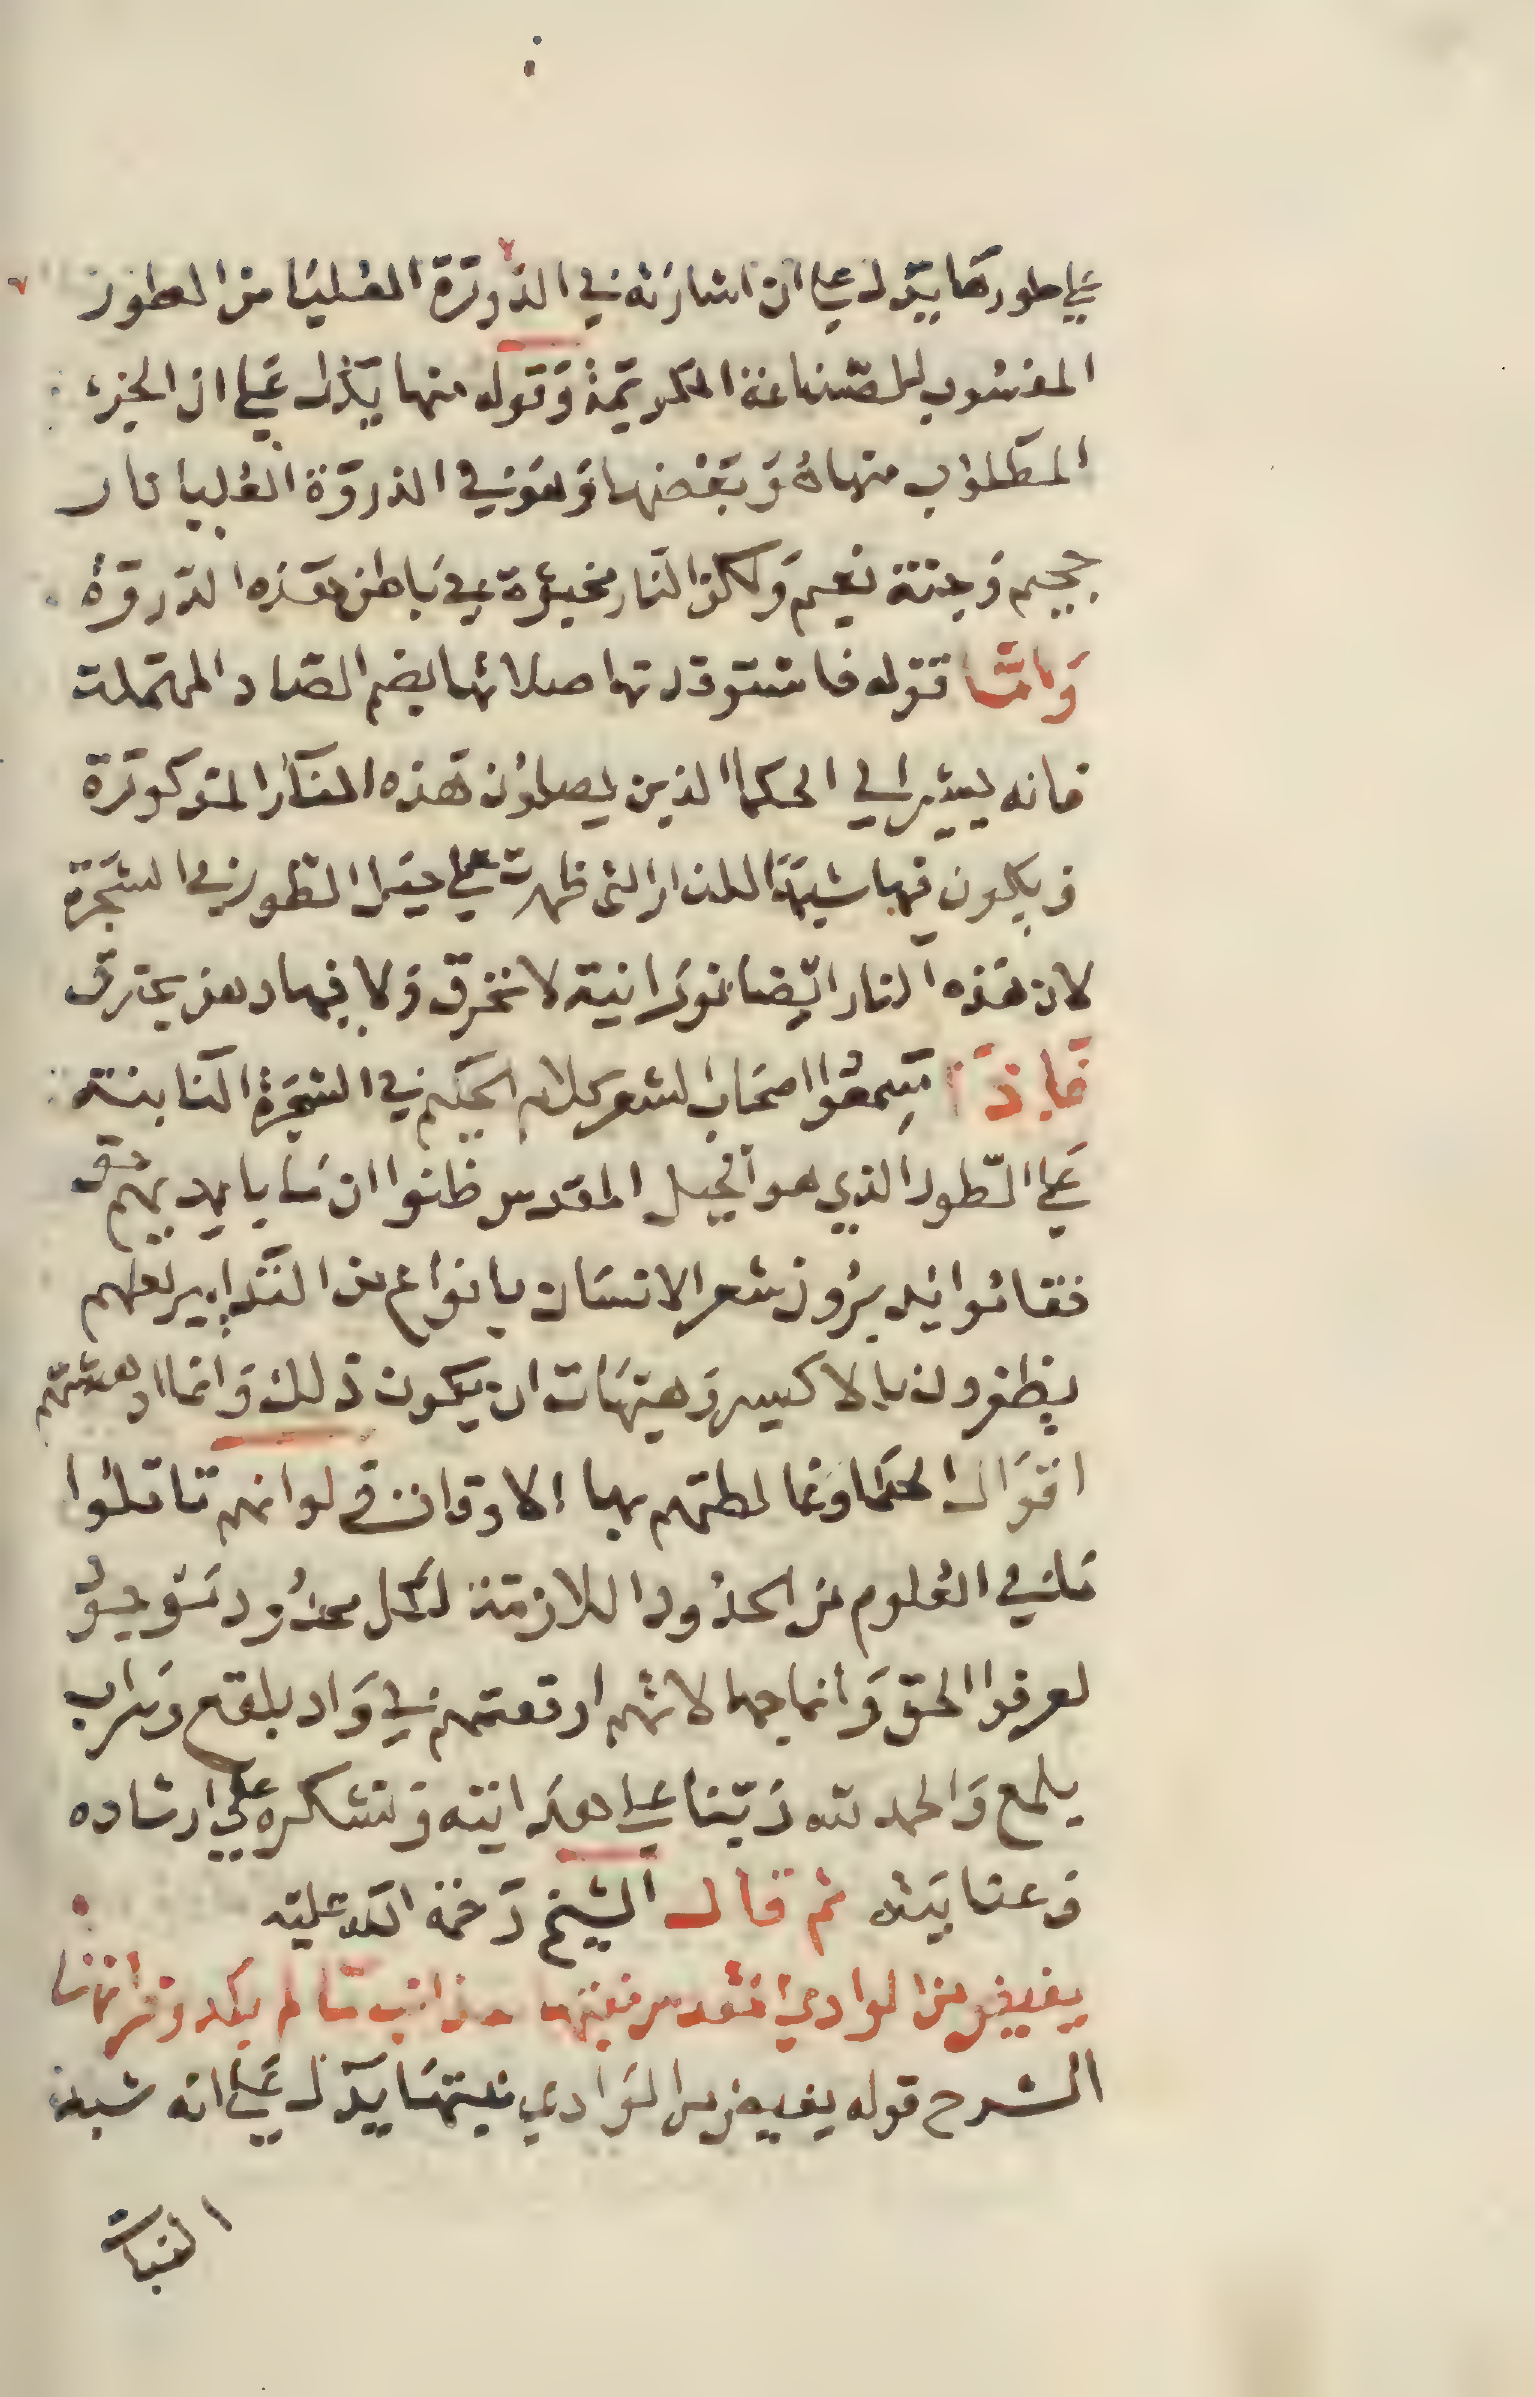 علي طورها يدل علي ان اشارته في الذورة العليا من الطور
المنسوب للصناعة الكريمة وقوله منها يدل علي ان الجزء
المطلوب منها هو بعضها وهو في الذروة العليا نار
جحيم وجنة نعيم ولكن النار مخبوة في باطن هذه الذروة
واما قوله فاستوقدتها صلاتها بضم الصاد المهملة
فانه يشير الي الحكما الذين يصلون هذه النار المذكورة
ويكون فيها شبها للنار التي ظهرت علي جبل الطور في الشجرة
لان هذه النار ايضا نورانية لا تحرق ولا فيها دهن يحترق
فاذا سمعوا اصحاب الشعر كلام الحكيم في الشجرة النابتة
علي الطور الذي هو الجبل المقدس ظنوا ان ما بايديهم حق
فقاموا يدبرون شعر الانسان بانواع من التدابير لعلهم
يظفرون بالاكسير وهيهات ان يكون ذلك وانما ادهشتهم
اقوال الحكما ومغالطتهم بها الاوقات في لو انهم تاملوا
ما في العلوم من الحدود اللازمة لكل محدود
لعرفوا الحق وانما جهالاتهم اوقعتهم في واد بلقع وسراب
يلمع والحمد لله ربنا علي هدايته ونشكره علي ارشاده
وعنايته ثم قال الشيخ رحمة الله عليه
يفيض من الوادي المقدس نبتها ذائب ما لم يكد
الشرح قوله يفيض من الوادي نبتها يدل علي انه شبه
النبات